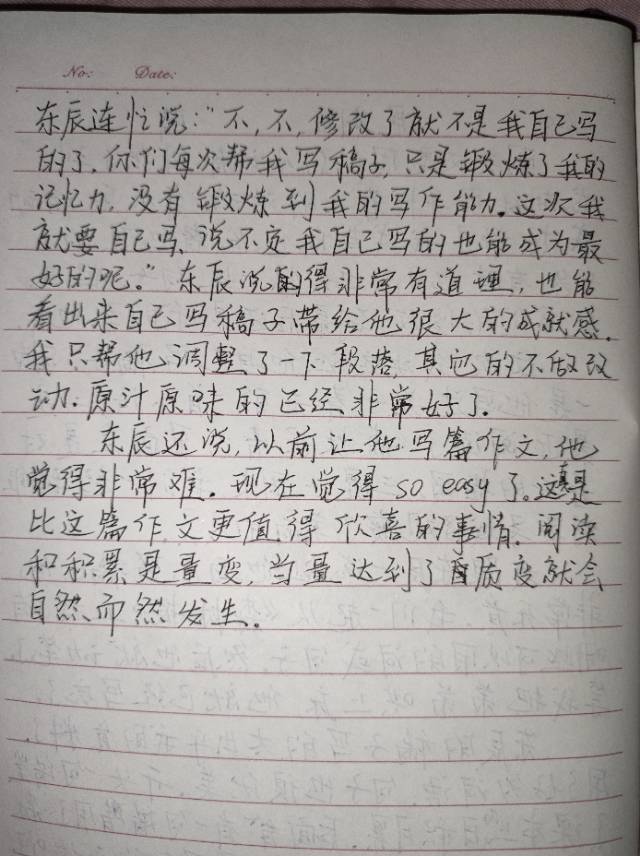 No:    Date:
东辰连忙说:"不,不,修改了就不是我自己写
的了.你们每次帮我写稿子,只是锻炼了我的
记忆力,没有锻炼到我的写作能力.这次我
就要自己写,说不定我自己写的也能成为最
好的呢."东辰说的得非常有道理,也能
看出来自己写稿子带给他很大的成就感.
我只帮他调整了一下段落,其它的不做改
动.原汁原味的已经非常好了.
东辰还说,以前让他写篇作文,他
觉得非常难.现在觉得 so easy 了.这真是
比这篇作文更值得欣喜的事情.阅读
和积累是量变,当量达到了质变就会
自然而然发生.